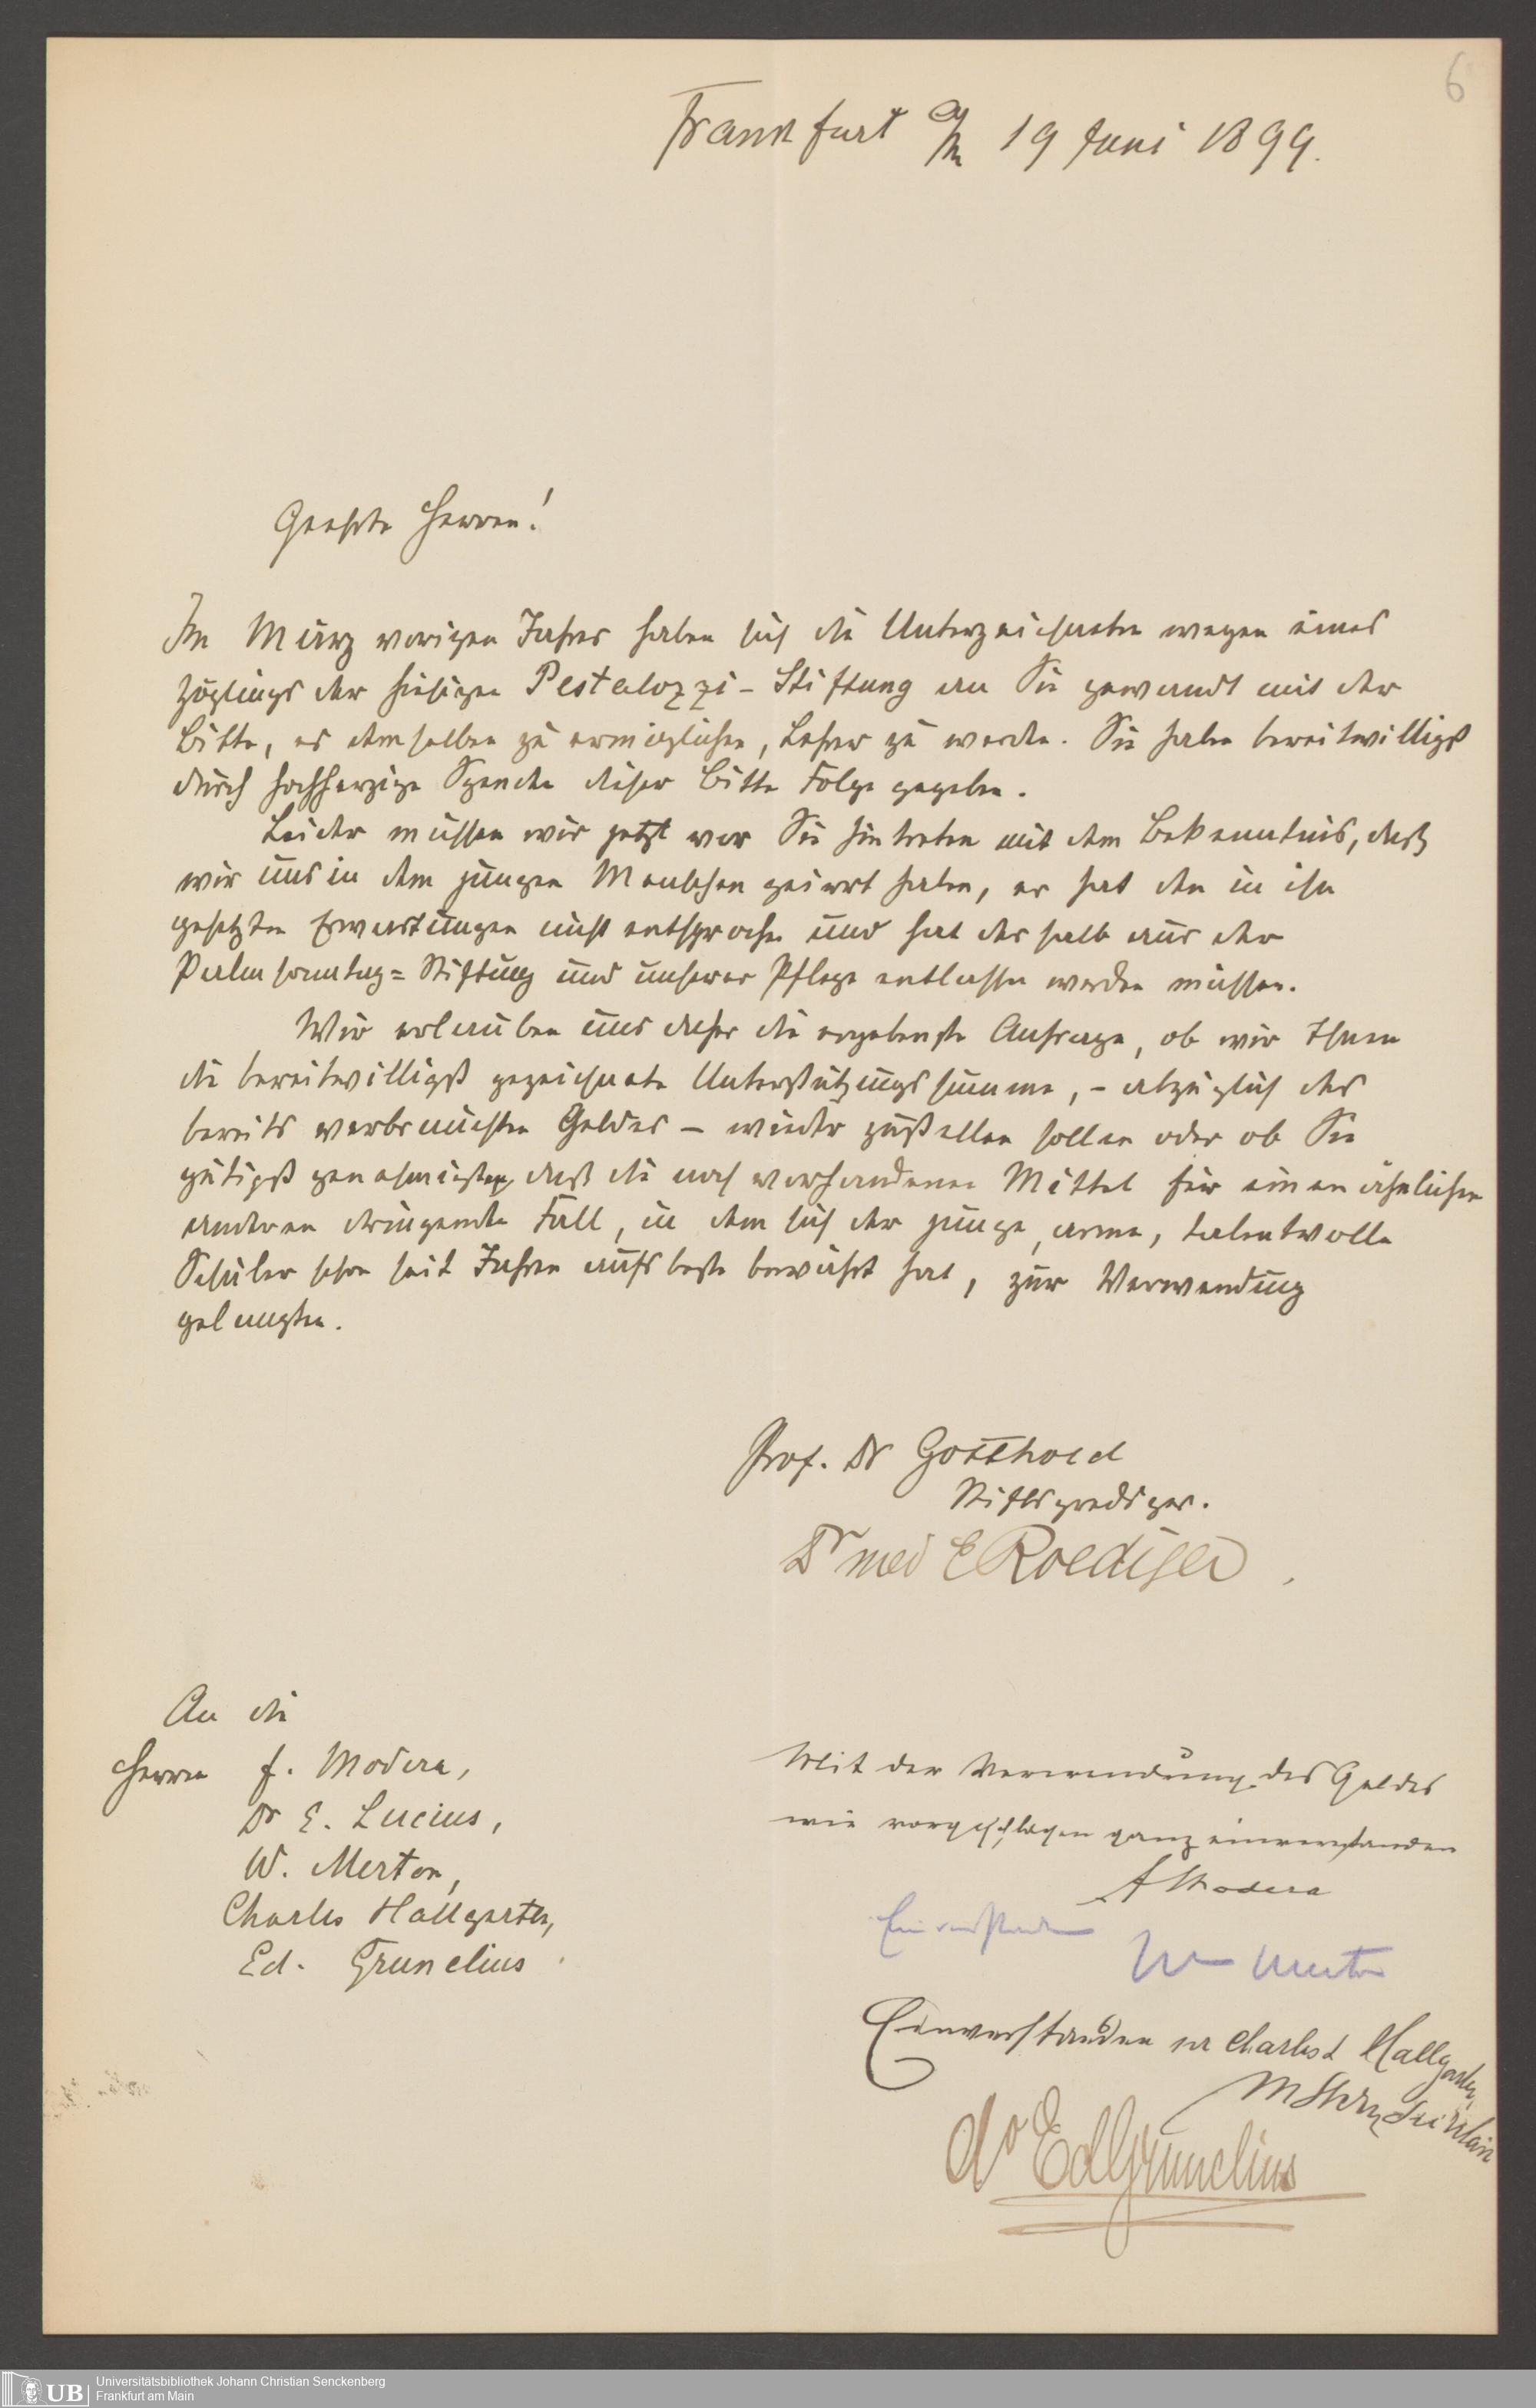 6
Frankfurt a/M 19 Juni 1899.
Geehrte Herren!
Im März vorigen Jahres haben sich die Unterzeichneten wegen eines
Zöglings der hiesigen Pestalozzi-Stiftung an Sie gewandt mit der
Bitte, es demselben zu ermöglichen, Lehrer zu werden. Sie haben bereitwilligst
durch hochherzige Spenden dieser Bitte Folge gegeben.
Leider müssen wir jetzt vor Sie hintreten mit dem Bekenntnis, daß
wir uns in dem jungen Menschen geirrt haben, er hat den in ihn
gesetzten Erwartungen nicht entsprochen und hat deshalb aus der
Palmsonntag=Stiftung und unserer Pflege entlassen werden müssen.
Wir erlauben uns daher die ergebenste Anfrage, ob wir Ihnen
die bereitwilligst gezeichnete Unterstützungssumme, - abzüglich des
bereits verbrauchten Geldes - wieder zustellen sollen oder ob Sie
gütigst genehmigten, daß die noch vorhandenen Mittel für einen ähnlichen
anderen dringenden Fall, in dem sich der junge, arme, talentvolle
Schüler schon seit Jahren aufs beste bewährt hat, zur Verwendung
gelangten.
Prof. Dr Gotthold
Stiftsprediger.
Dr med E Roediger
An die
Herren F. Modera,
Dr E. Lucius,
W. Merton,
Charles Hallgarten,
Ed. Grunelius
Mit der Verwendung des Geldes
wie vorgeschlagen ganz einverstanden
F Modera
Einverstanden
Wm Merton
Einverstanden Charles L Hallgarten,
do Ed Grunelius
UB Universitätsbibliothek Johann Christian Senckenberg
Frankfurt am Main